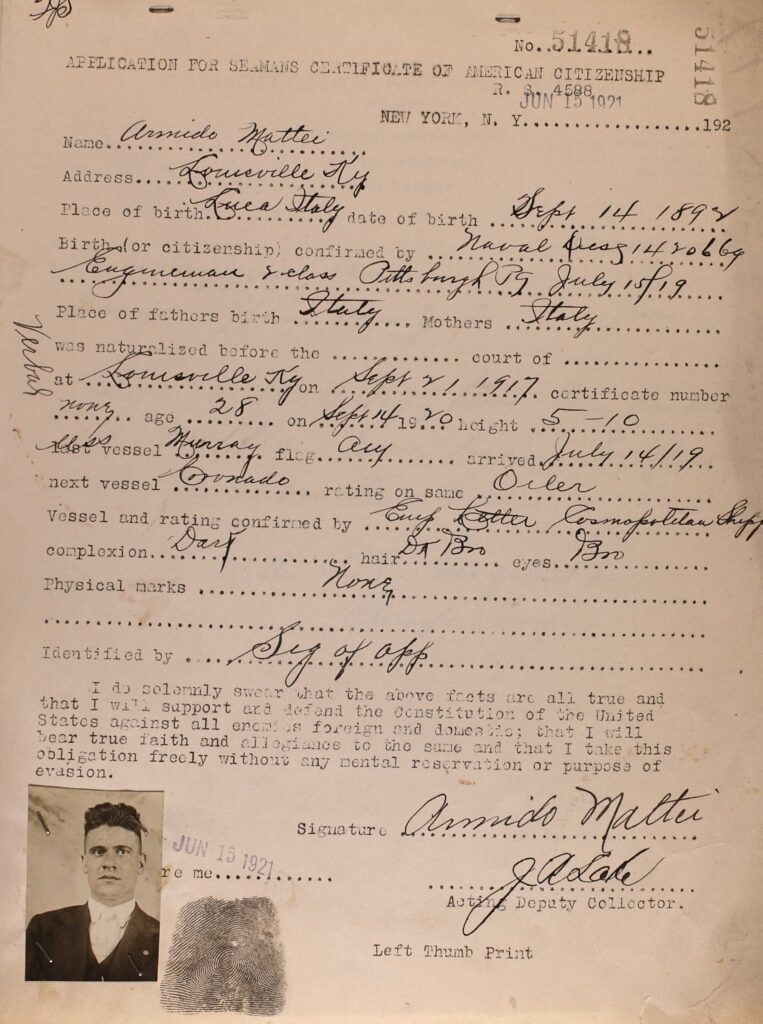 No. 51418
51418
APPLICATION FOR SEAMANS CERTIFICATE OF AMERICAN CITIZENSHIP
R. S. 4588
JUN 15 1921
NEW YORK, N. Y. 192
Name. Armido Mattei
Address. Louisville Ky
Place of birth. Luca Italy date of birth Sept 14 1892
Birth (or citizenship) confirmed by Naval 1420669
Engineman 2 class Pittsburgh Pa July 15/19
Place of fathers birth Italy Mothers Italy
was naturalized before the court of
Verbal
at Louisville Ky on Sept 21, 1917. certificate number
none age 28 on Sept 14 1920 height 5-10
last vessel Murray flag arrived July 14/19
next vessel Coronado rating on same Oiler
Vessel and rating confirmed by Letter Cosmopolitan Shipp
complexion Dark hair Dk Bro eyes Bro
Physical marks None
Identified by Sig of app
I do solemnly swear that the above facts are all true and
that I will support and defend the Constitution of the United
States against all enemies foreign and domestic; that I will
bear true faith and allegiance to the same and that I take this
obligation freely without any mental reservation or purpose of
evasion.
Signature Armido Mattei
JUN 15 1921
re me
Acting Deputy Collector.
Left Thumb Print